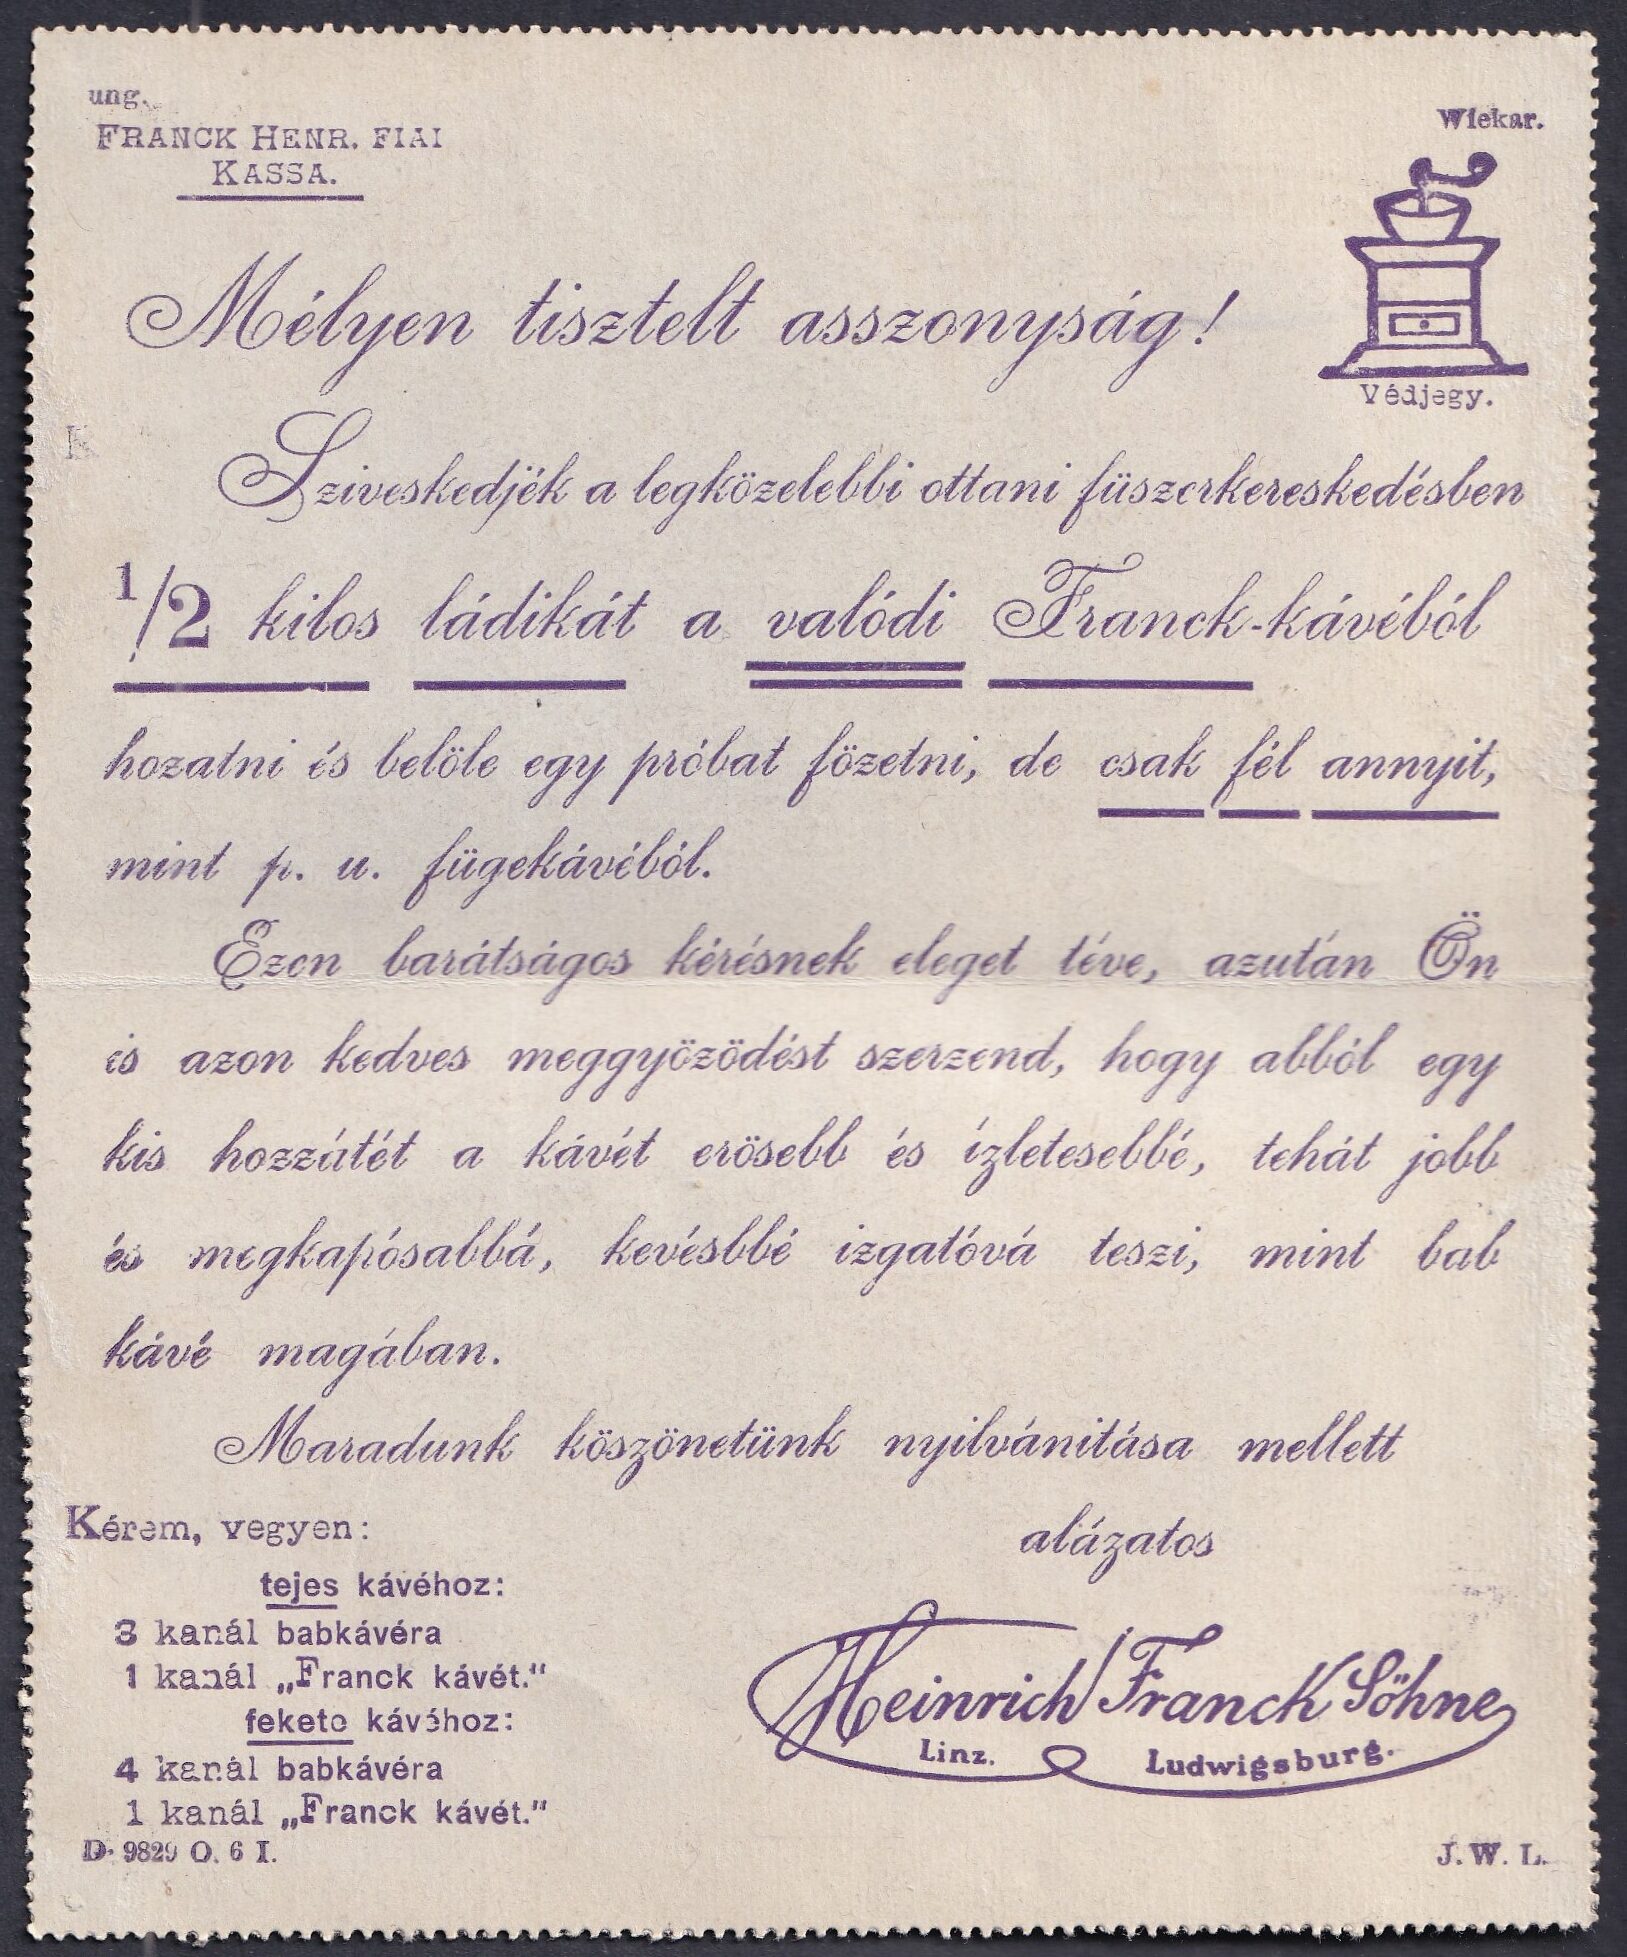 ung.
FRANCK HENR. FIAI
KASSA.
Wiekar.
Védjegy.
Mélyen tisztelt asszonyság!
Sziveskedjék a legközelebbi ottani füszerkereskedésben
1/2 kilos ládikát a valódi Franck-kávéból
hozatni és belöle egy próbat fözetni, de csak fél annyit,
mint p. u. fügekávéból.
Ezen barátságos kérésnek eleget téve, azután Ön
is azon kedves meggyözödést szerzend, hogy abból egy
kis hozzátét a kávét erösebb és ízletesebbé, tehát jobb
és megkapósabbá, kevésbbé izgatóvá teszi, mint bab
kávé magában.
Maradunk köszönetünk nyilvánitása mellett
alázatos
Kérem, vegyen:
tejes kávéhoz:
3 kanál babkávéra
1 kanál „Franck kávét."
fekete kávéhoz:
4 kanál babkávéra
1 kanál „Franck kávét."
D. 9829 O. 6 I.
Heinrich Franck Söhne
Linz. Ludwigsburg.
J. W. L.